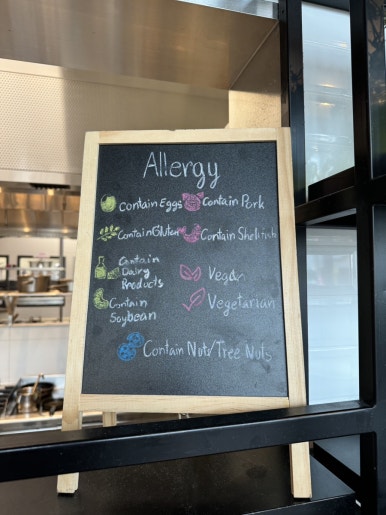 Allergy
Contain Eggs
Contain Pork
Contain Gluten
Contain Shellfish
Contain
Dairy
Products
Vegan
Contain
Soybean
Vegetarian
Contain Nuts/Tree-Nuts